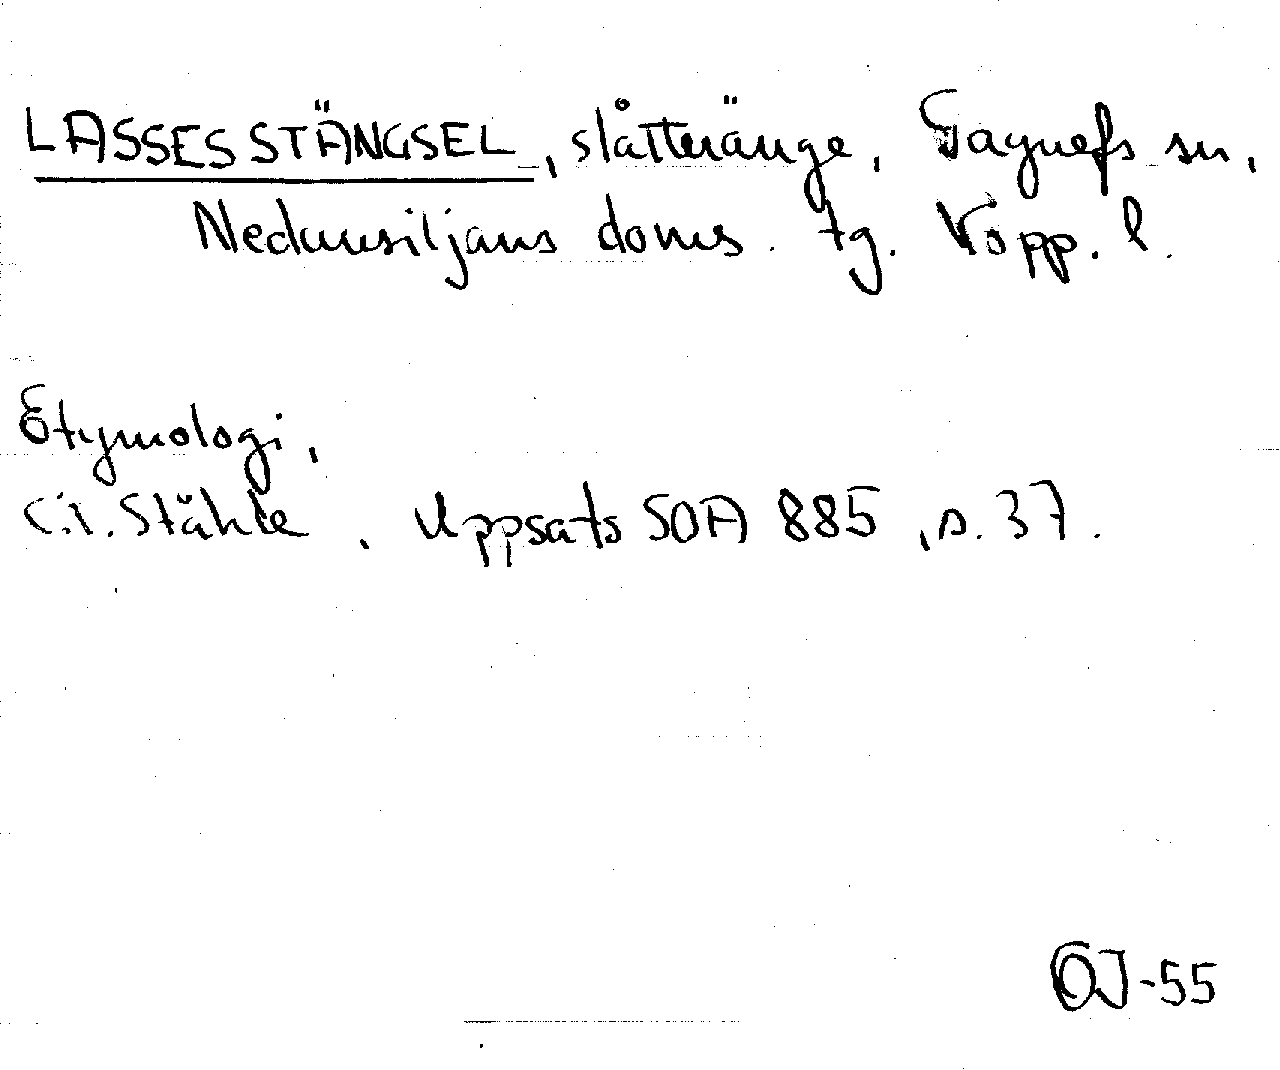 LASSES STÄNGSEL, slåtteränge, Gagnefs sn,
Nedansiljans doms. tg. Kopp. l.
Etymologi,
C.I. Ståhle, Uppsats SOA 885, s. 37.
OJ-55